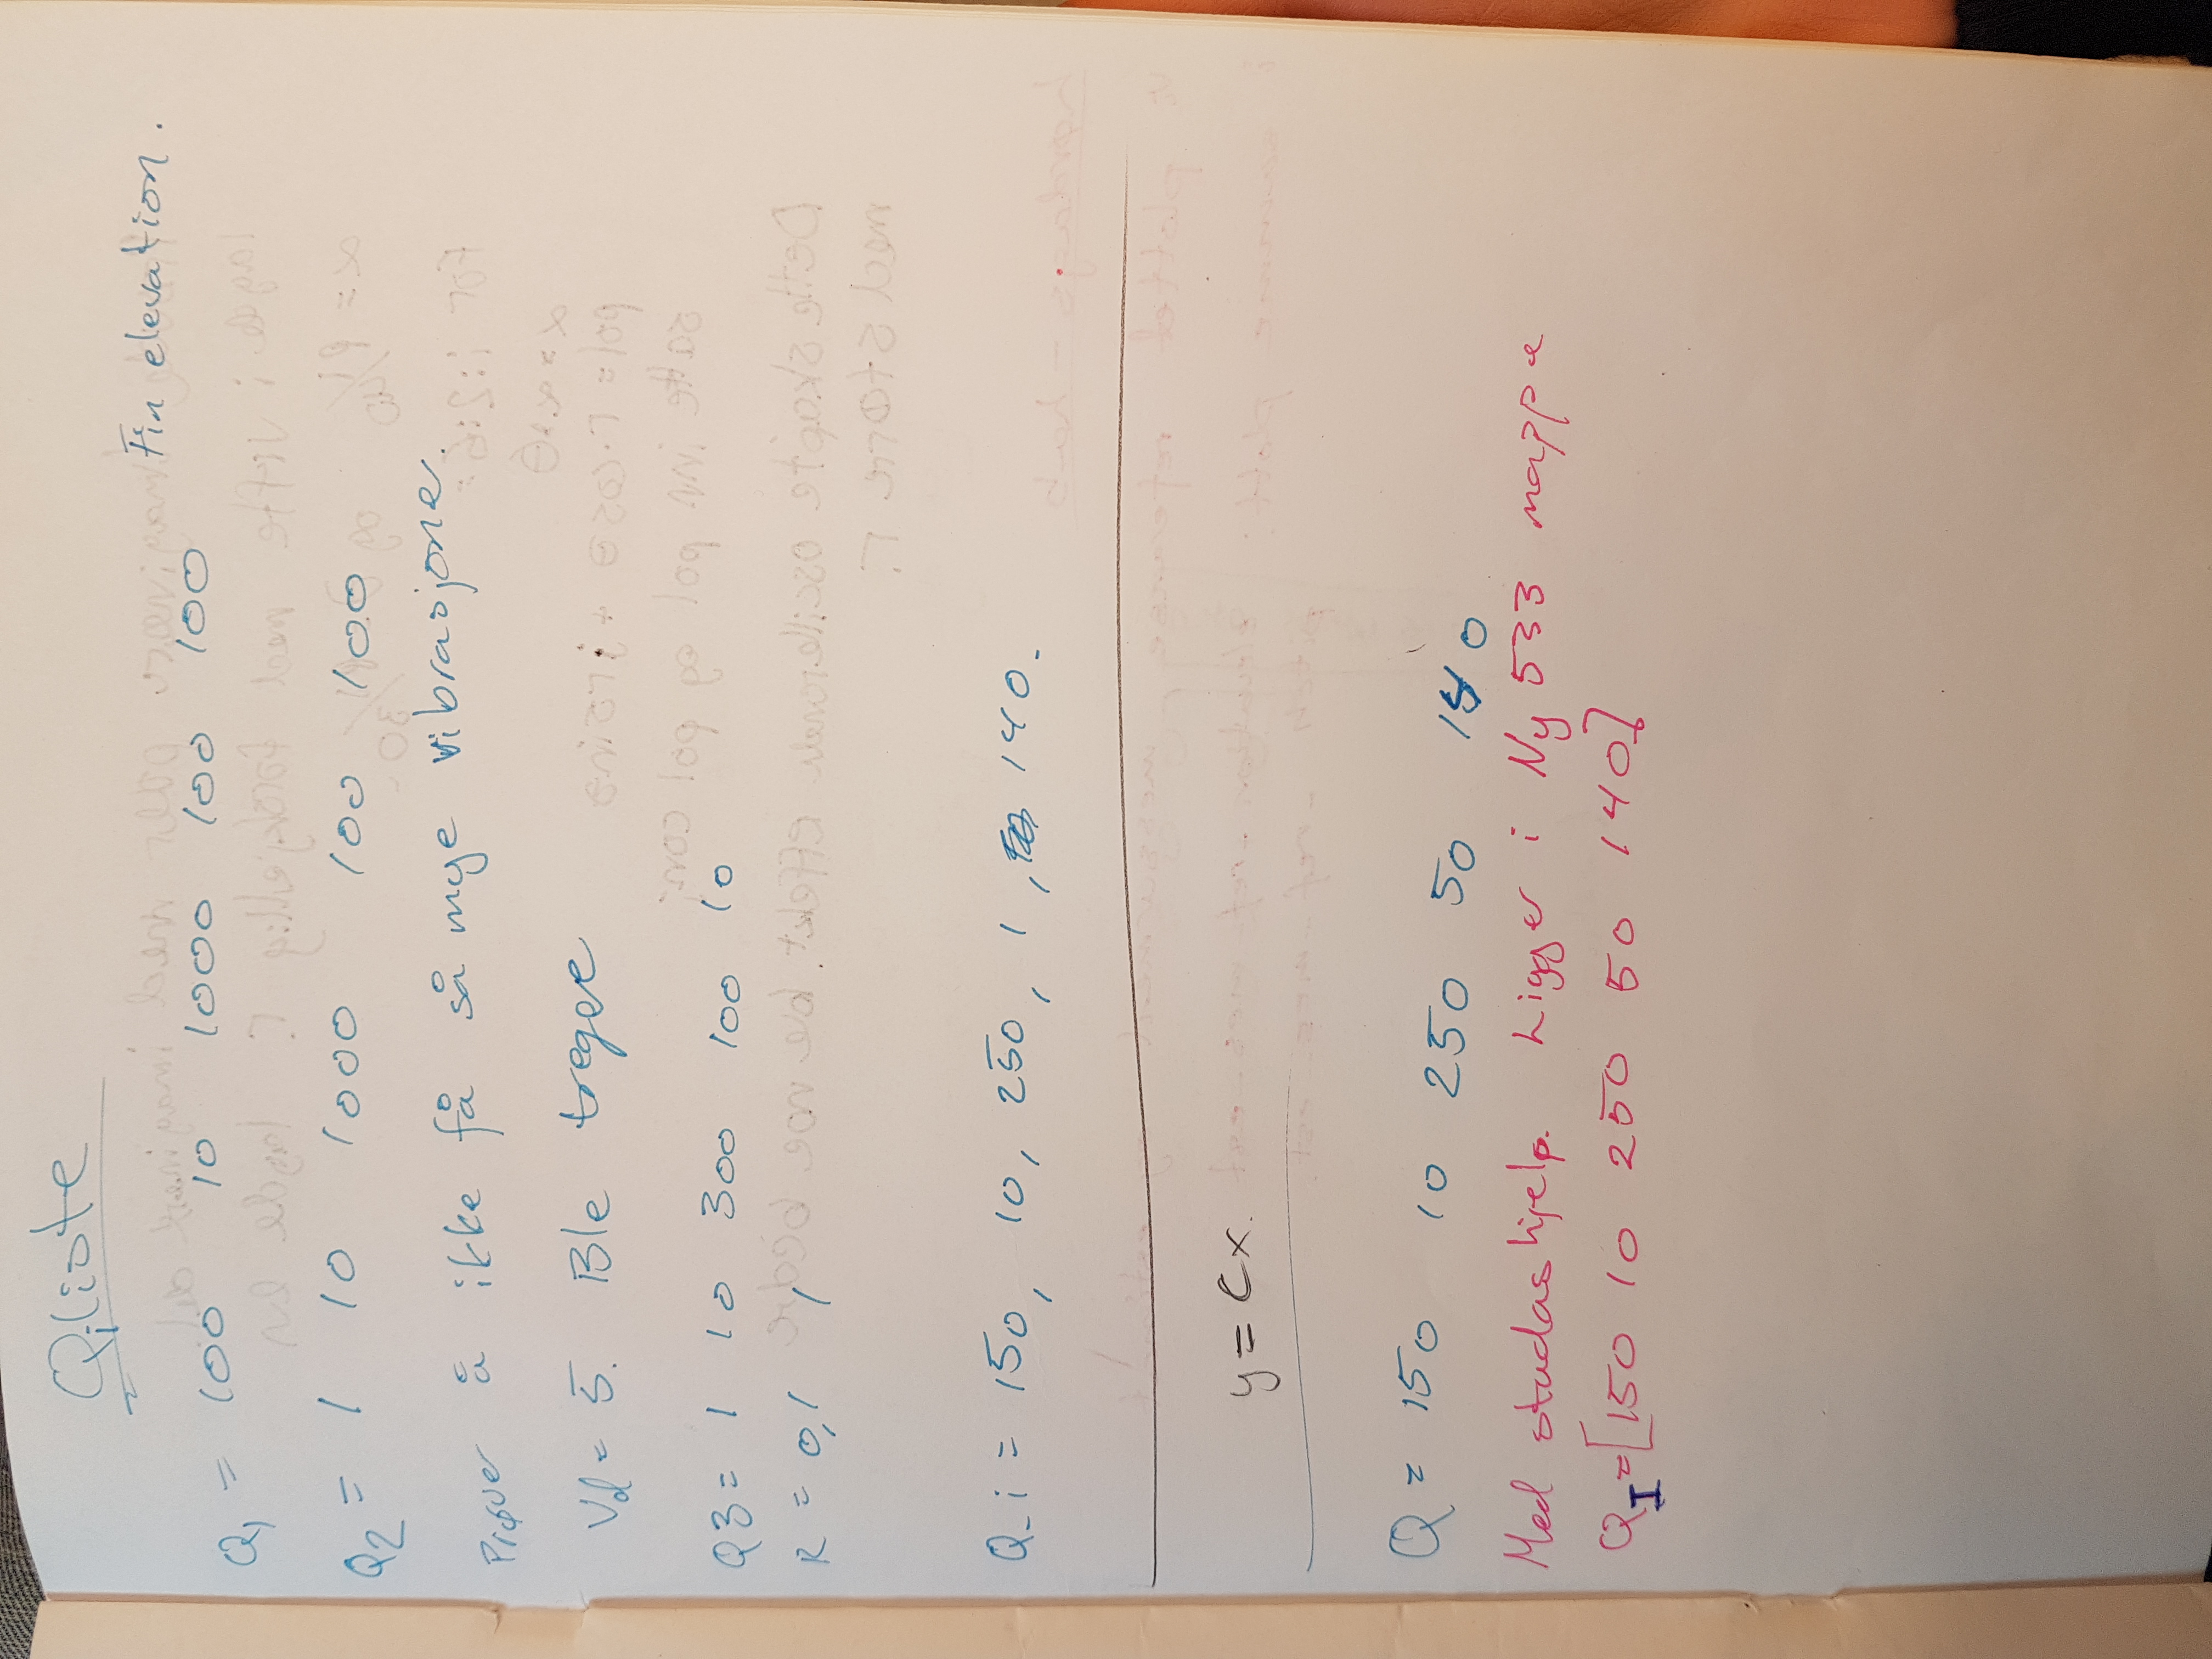 Qiliste
Fin elevation.
Q1 = 100 10 1000 100 100
Q2 = 1 10 1000 100 100
Prøver å ikke få så mye vibrasjoner.
Vd = 5. Ble tregere
Q3 = 1 10 300 100 10
R = 0,1 1
Q_i = 150, 10, 250, 1, 140.
y = Cx.
Q = 150 10 250 50 140
Med studashjelp. Ligger i Ny 533 mappe
QI = [150 10 250 50 140]